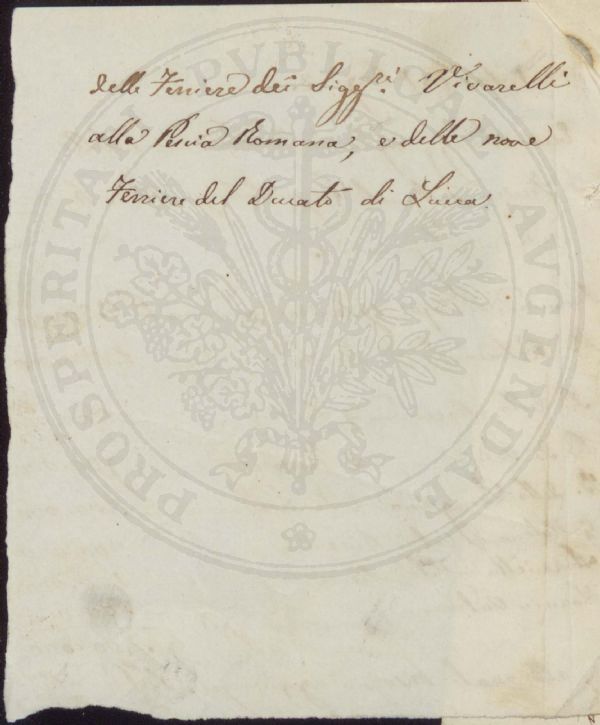 delle Ferriere dei Sigg:ri Vivarelli
alla Pescia Romana, e delle nove
Ferriere del Ducato di Lucca.
PROSPERITATI PVBLICAE AVGENDAE